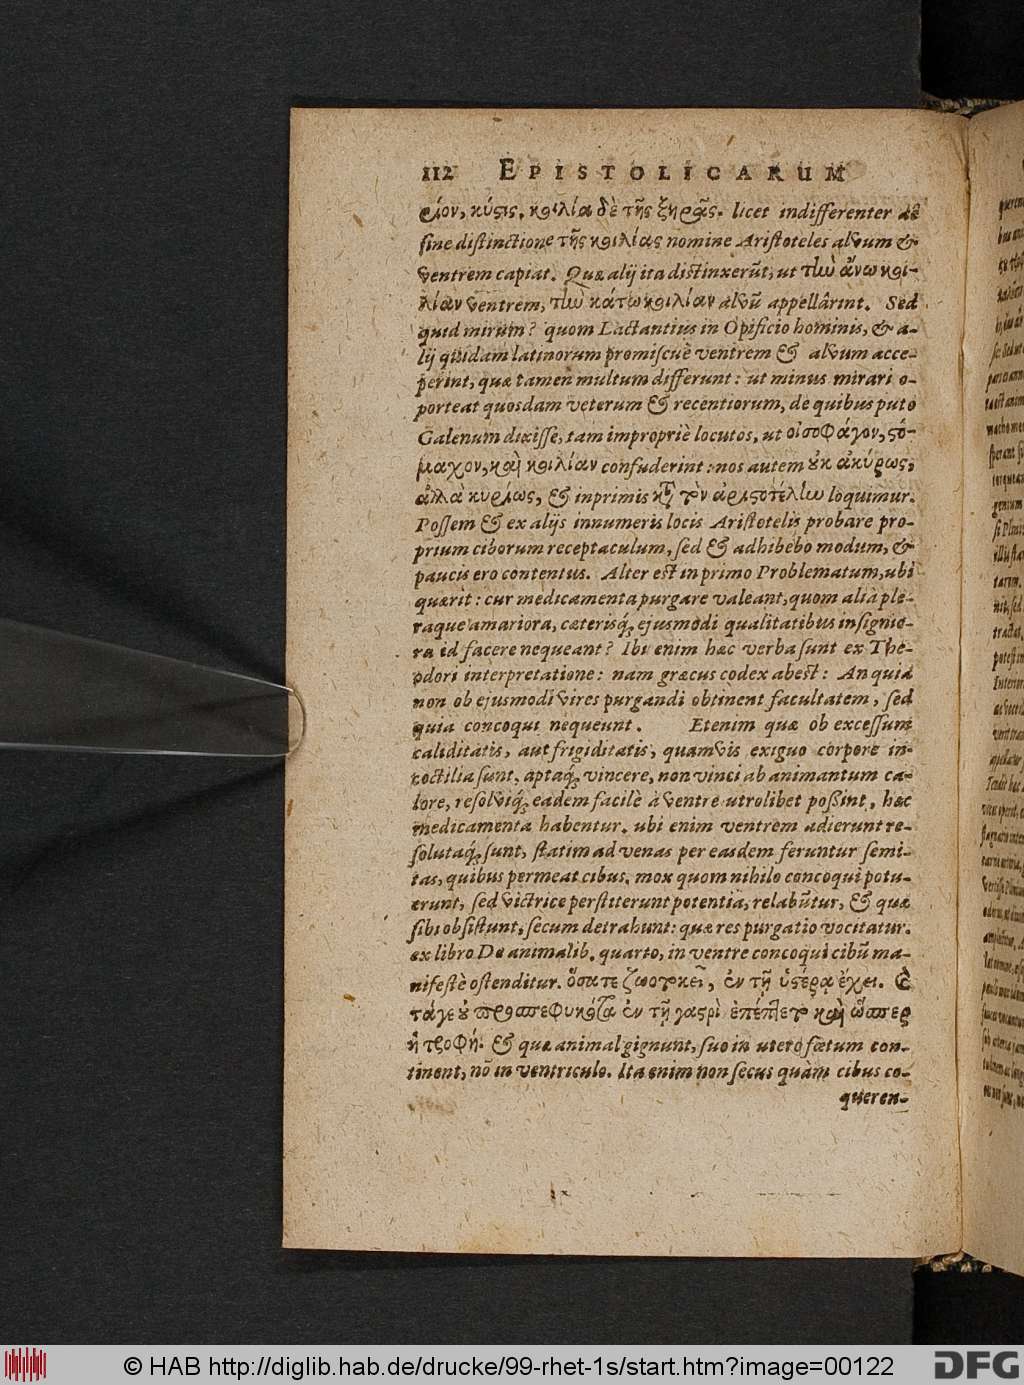 112 EPISTOLICARUM
ρίον, κύςις. κοιλία δὲ τῆς ξηρᾶς. licet indifferenter ac
sine distinctione τῆς κοιλίας nomine Aristoteles alvum &
ventrem capiat. Quæ alij ita distinxerūt, ut τὴν ἄνω κοι-
λίαν ventrem, τὴν κάτω κοιλίαν alvū appellârint. Sed
quid mirum? quom Lactantius in Opificio hominis, & a-
lij quidam latinorum promiscuè ventrem & alvum acce-
perint, quæ tamen multum differunt: ut minus mirari o-
porteat quosdam veterum & recentiorum, de quibus puto
Galenum dixisse, tam impropriè locutos, ut οἰσοφάγον, ςό-
μαχον, καὶ κοιλίαν confuderint: nos autem οὐκ ἀκύρως,
ἀλλὰ κυρίως, & inprimis κατ̀ τὸν ἀριςοτέλην loquimur.
Possem & ex alijs innumeris locis Aristotelis probare pro-
prium ciborum receptaculum, sed & adhibebo modum, &
paucis ero contentus. Alter est in primo Problematum, ubi
quærit: cur medicamenta purgare valeant, quom alia ple-
raque amariora, cæterisq́; ejusmodi qualitatibus insignio-
ra id facere nequeant? Ibi enim hæc verba sunt ex The-
odori interpretatione: nam græcus codex abest: An quia
non ob ejusmodi vires purgandi obtinent facultatem, sed
quia concoqui nequeunt. Etenim quæ ob excessum
caliditatis, aut frigiditatis, quamvis exiguo corpore in-
coctilia sunt, aptaq́; vincere, non vinci ab animantum ca-
lore, resolviq́; eadem facilè à ventre utrolibet poßint, hæc
medicamenta habentur. ubi enim ventrem adierunt re-
solutaq́; sunt, statim ad venas per easdem feruntur semi-
tas, quibus permeat cibus. mox quom nihilo concoqui potu-
erunt, sed victrice perstiterunt potentia, relabūtur, & quæ
sibi obsistunt, secum detrahunt: quæ res purgatio vocitatur.
ex libro De animalib. quarto, in ventre concoqui cibū ma-
nifestè ostenditur. ὅσα τε ζωοτοκεῖ, ἐν τῇ ὑςέρᾳ ἔχει. &
τά γε οὐ προσπεφυκότα ἐν τῇ γαςρὶ ἐπέπλετο καὶ ὥσπερ
ἡ τροφή. & quæ animal gignunt, suo in utero fœtum con-
tinent, nō in ventriculo. Ita enim non secus quàm cibus co-
queren-
© HAB http://diglib.hab.de/drucke/99-rhet-1s/start.htm?image=00122
DFG